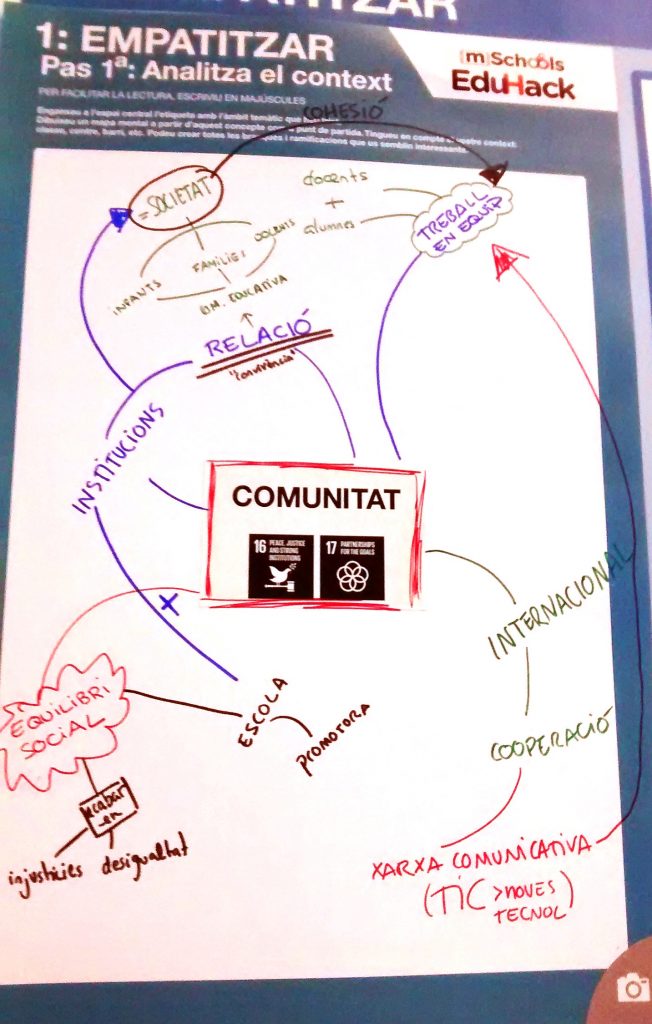 EMPATITZAR
1: EMPATITZAR
Pas 1ª: Analitza el context
PER FACILITAR LA LECTURA, ESCRIVIU EN MAJÚSCULES
(m)Schools
EduHack
Enganxeu a l'espai central l'etiqueta amb l'àmbit temàtic que
Dibuixeu un mapa mental a partir d'aquest concepte com a punt de partida. Tingueu en compte el vostre context:
classe, centre, barri, etc. Podeu crear totes les branques i ramificacions que us semblin interessants.
COHESIÓ
= SOCIETAT
docents
+
alumnes
TREBALL
EN EQUIP
DOCENTS
FAMÍLIES
INFANTS
EDUCATIVA
RELACIÓ
"convivència"
INSTITUCIONS
COMUNITAT
16 PEACE, JUSTICE
AND STRONG
INSTITUTIONS
17 PARTNERSHIPS
FOR THE GOALS
+
INTERNACIONAL
EQUILIBRI
SOCIAL
ESCOLA
PROMOTORA
COOPERACIÓ
acabar
-en
injustícies desigualtat
XARXA COMUNICATIVA
(TIC > NOVES
TECNOL)